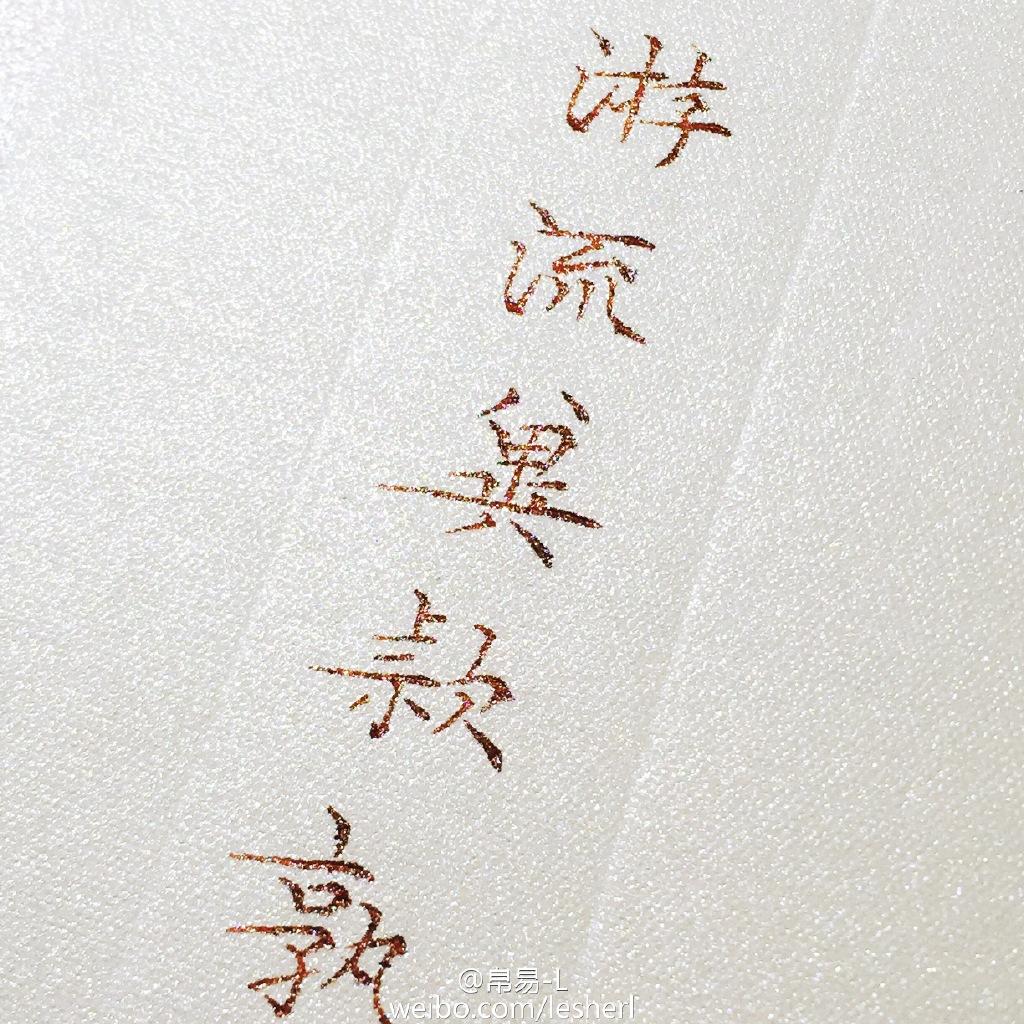 游
流
冀
款
敦
@帛易-L
weibo.com/lesherl